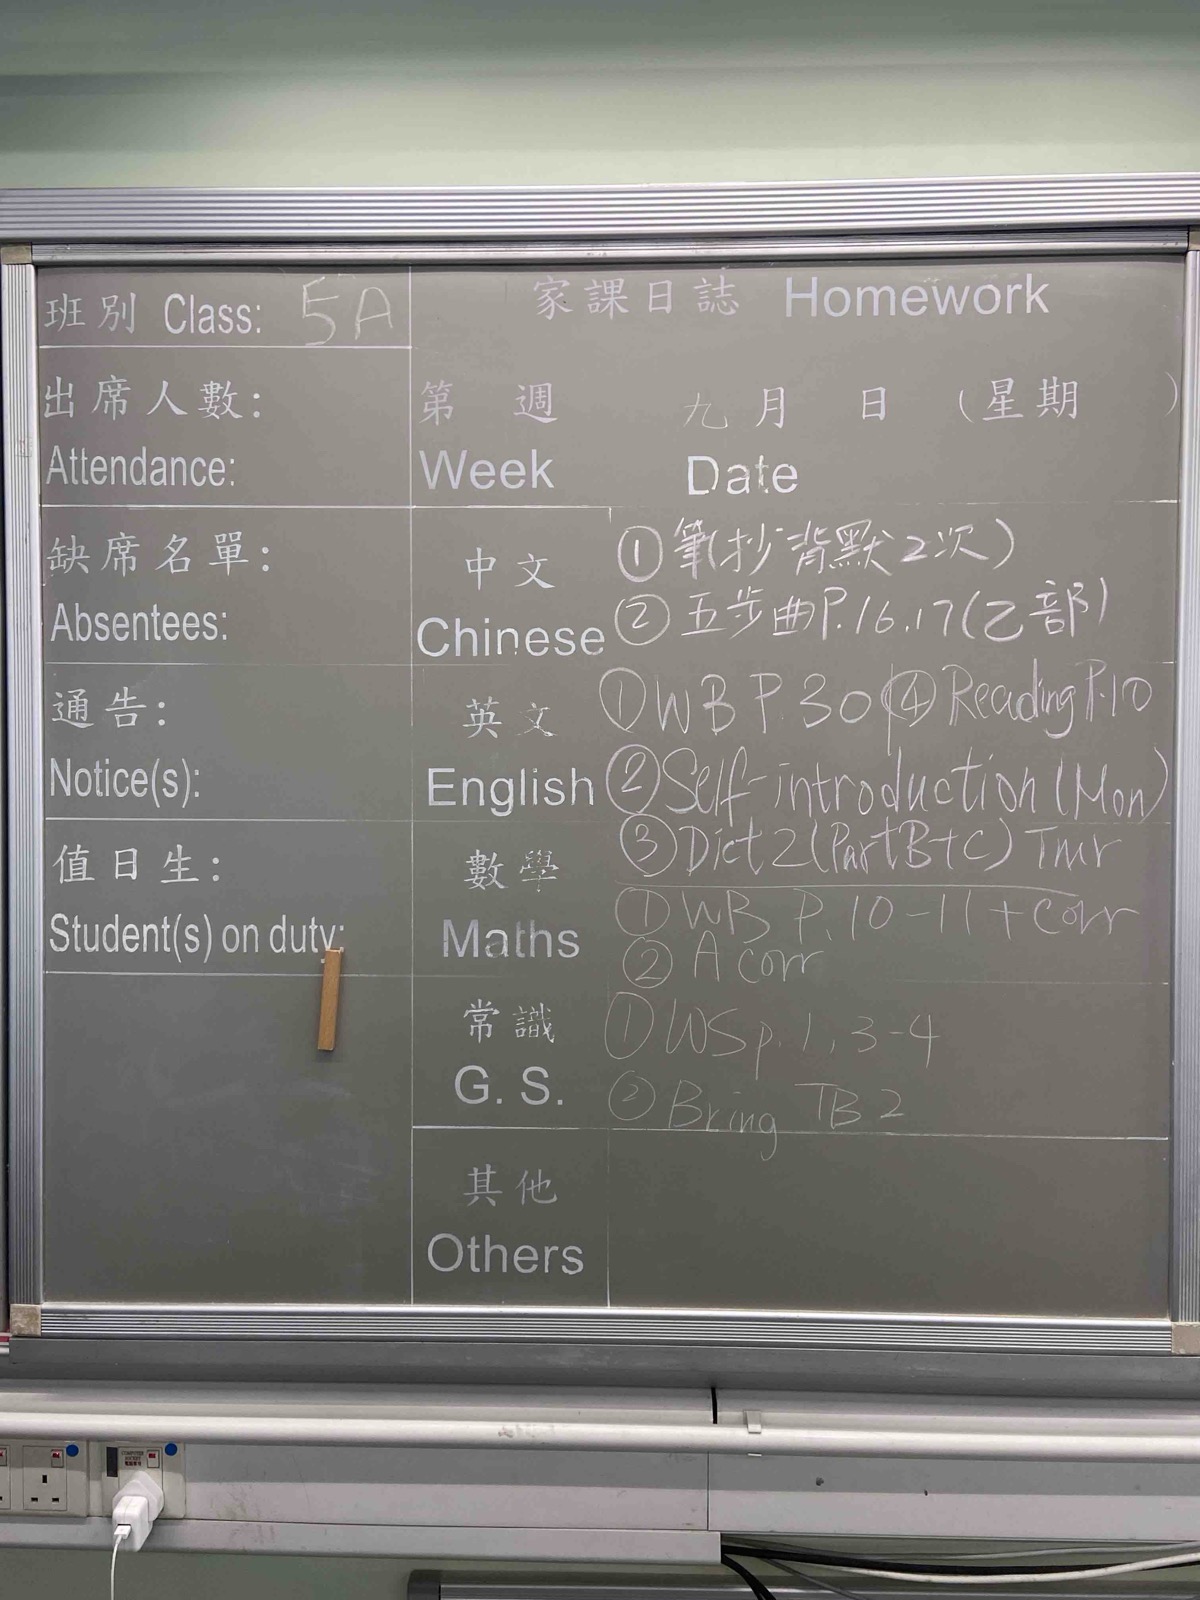 班別 Class: 5A
家課日誌 Homework
出席人數:
Attendance:
第 週 九 月 日 (星期 )
Week Date
缺席名單:
Absentees:
中文
Chinese
① 筆(抄背默2次)
② 五步曲P.16.17(乙部)
通告:
Notice(s):
英文
English
① WB P.30 ④ Reading P.10
② Self-introduction (Mon)
③ Dict 2 (Part B+C) Tmr
值日生:
Student(s) on duty:
數學
Maths
① WB P.10-11 + corr
② A corr
常識
G. S.
① WS p.1, 3-4
② Bring TB 2
其他
Others